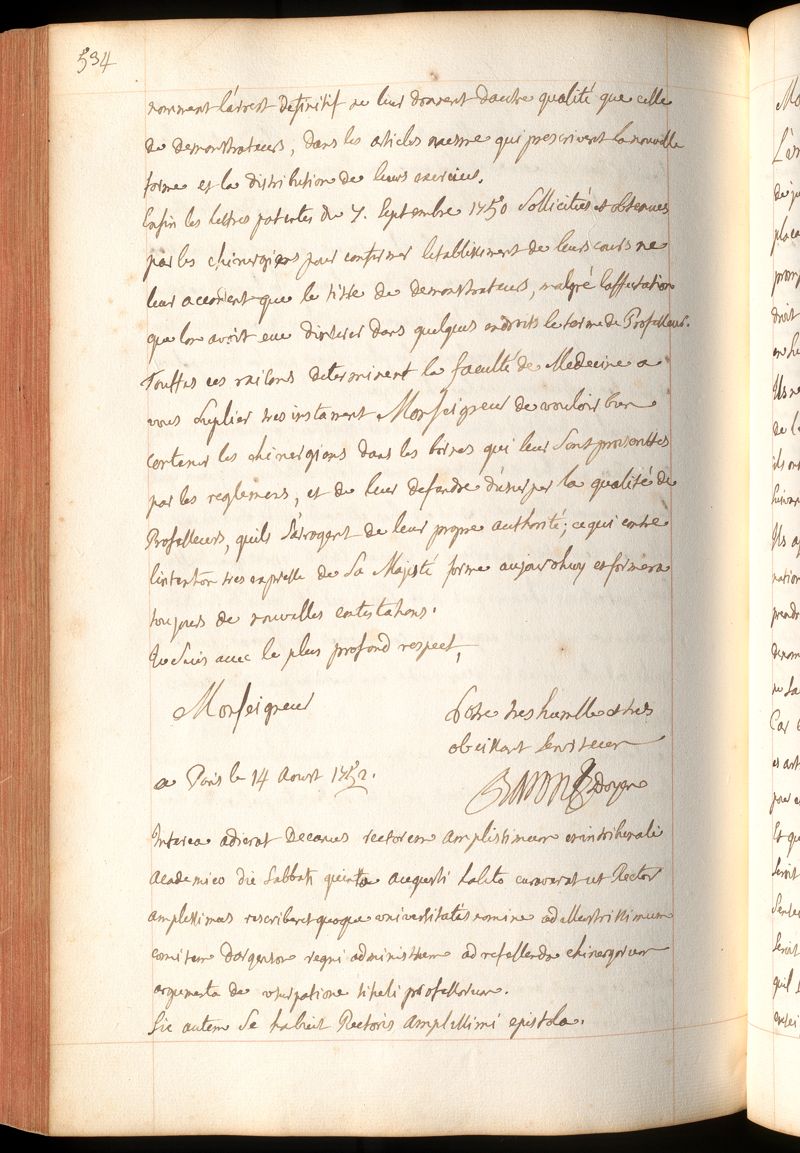 534
nomment l'arrest definitif ne leur donnent d'autre qualité que celle
de demonstrateurs, dans les articles mesme qui prescrivent la nouvelle
forme et la distribution de leurs exercices.
Enfin les lettres patentes du 7. Septembre 1750 Sollicitées et obtenues
par les chirurgiens pour confirmer letablissement de leurs cours ne
leur accordent que le titre de demonstrateurs, malgré laffectation
que lon avoit eue dinserer dans quelques endroits le terme de Professeur.
Touttes ces raisons determinent la faculté de Medecine a
vous Suplier tres instament Monseigneur de vouloir bien
contenir les chirurgiens dans les bornes qui leur Sont prescrittes
par les reglemens, et de leur defendre d'usurper la qualité de
Professeurs, quils S'arrogent de leur propre authorité; ce qui contre
l'intention tres expresse de Sa Majesté forme aujourdhuy et formera
toujours de nouvelles contestations.
Je Suis avec le plus profond respect,
Monseigneur
Votre tres humble et tres
obeissant Serviteur
a Paris le 14 Aoust 1752.
Doyen
Interea adierat Decanus rectorem amplissimum et in tribunali
Academico die Sabbati quinta augusti habito curaverat ut Rector
amplissimus rescriberet quoque universitatis nomine ad illustrissimum
comitem Dargenson regni administrum ad refellenda chirurgorum
argumenta de usurpatione tituli professorum.
Sic autem Se habuit Rectoris amplissimi epistola.